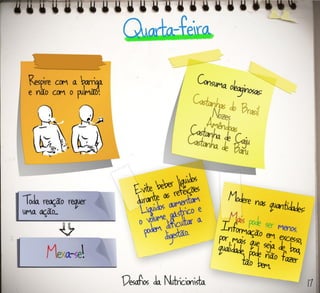 Quarta-feira
Respire com a barriga
e não com o pulmão!
Consuma oleaginosas:
Castanhas do Brasil
Nozes
Amêndoas
Castanha de Caju
Castanha de Baru
Evite beber líquidos
durante as refeições
Líquidos aumentam
o volume gástrico e
podem dificultar a
digestão.
Toda reação requer
uma ação...
Mexa-se!
Modere nas quantidades:
Mais pode ser menos.
Informação em excesso,
por mais que seja de boa
qualidade, pode não fazer
tão bem.
Desafios da Nutricionista
17